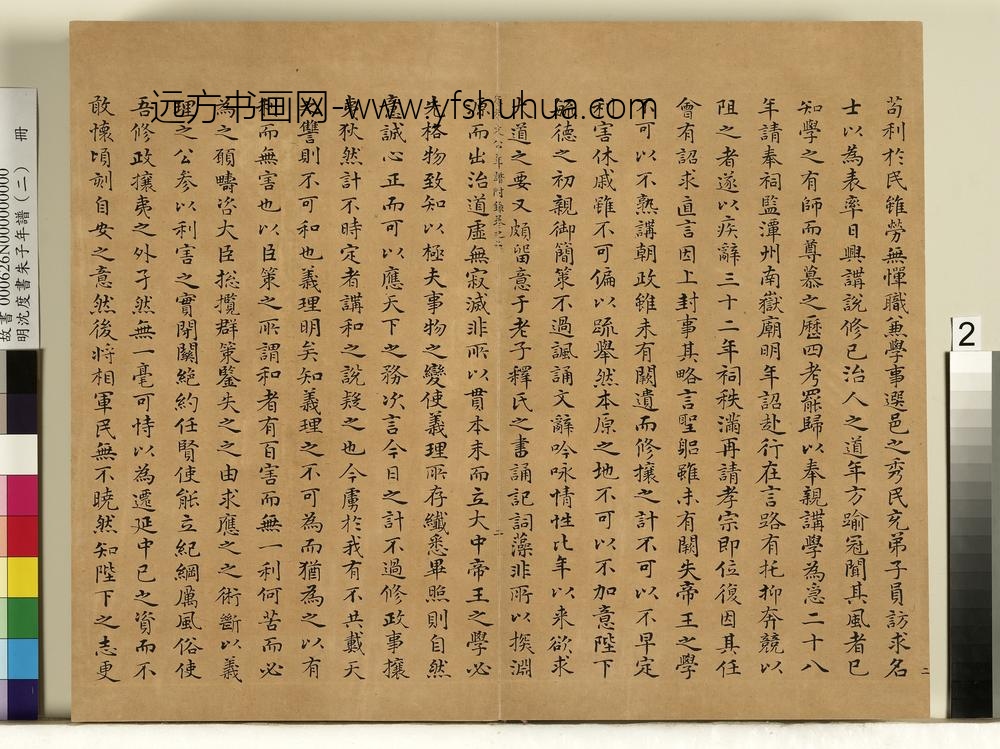 远方书画网-www.yfshuhua.com
苟利於民雖勞無憚職兼學事選邑之秀民充弟子員訪求名
士以為表率日與講說修己治人之道年方踰冠聞其風者已
知學之有師而尊慕之歷四考罷歸以奉親講學為急二十八
年請奉祠監潭州南嶽廟明年詔赴行在言路有托抑奔競以
阻之者遂以疾辭三十二年祠秩滿再請孝宗即位復因其任
會有詔求直言因上封事其略言聖躬雖未有闕失帝王之學
不可以不熟講朝政雖未有闕遺而修攘之計不可以不早定
利害休戚雖不可偏以疏舉然本原之地不可以不加意陛下
毓德之初親御簡策不過諷誦文辭吟咏情性比年以來欲求
大道之要又頗留意于老子釋氏之書誦記詞藻非所以探淵
文公年譜附錄卷之
二
源而出治道虛無寂滅非所以貫本末而立大中帝王之學必
先格物致知以極夫事物之變使義理所存纖悉畢照則自然
意誠心正而可以應天下之務次言今日之計不過修政事攘
夷狄然計不時定者講和之說疑之也今虜於我有不共戴天
之讐則不可和也義理明矣知義理之不可為而猶為之以有
利而無害也以臣策之所謂和者有百害而無一利何苦而必
為之願疇咨大臣総攬群策鑒失之之由求應之之術斷以義
理之公参以利害之實閉關絕約任賢使能立紀綱厲風俗使
吾修政攘夷之外孑然無一毫可恃以為遷延中已之資而不
敢懷頃刻自安之意然後將相軍民無不曉然知陛下之志更
故書 000626N000000000
明沈度書朱子年譜(二) 冊
2